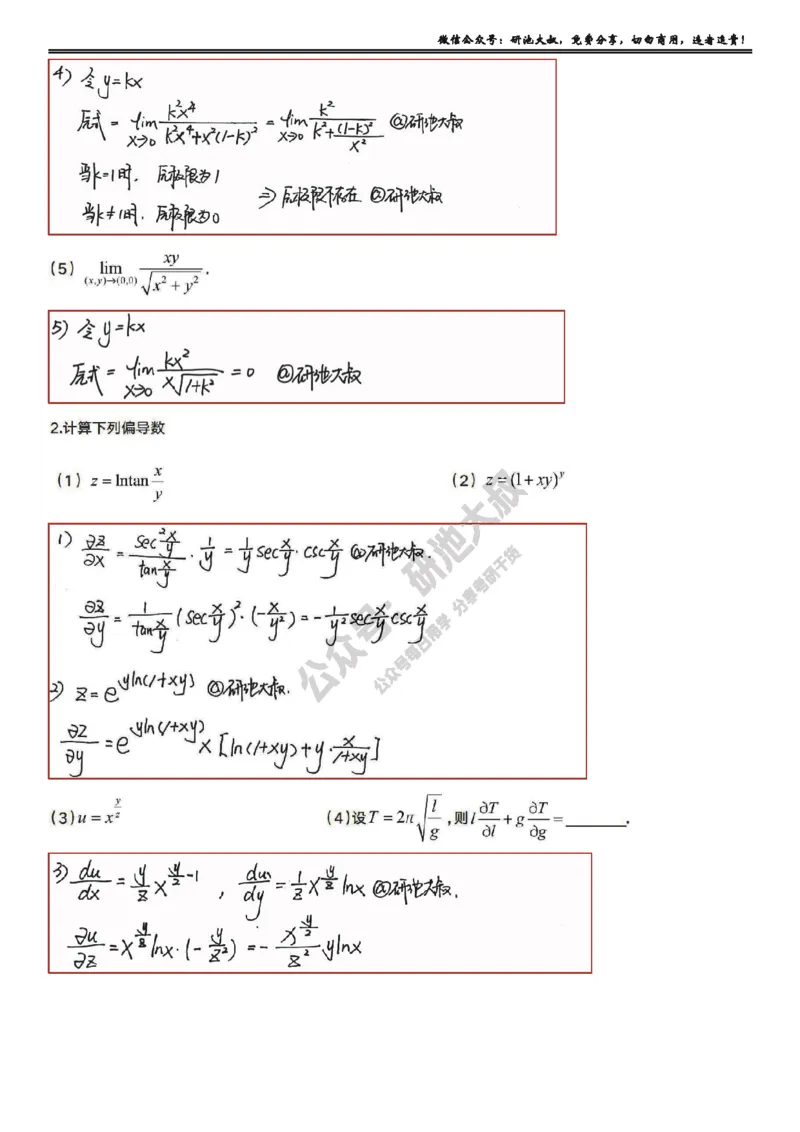 微信公众号：研池大叔，免费分享，切勿商用，违者追责！
4) 令y=kx
原式 = lim_{x→0} k²x⁴/(k²x⁴+x²(1-k)²) = lim_{x→0} k²/(k²+(1-k)²/x²) @研池大叔
当k=1时，原极限为1
⇒ 原极限不存在 @研池大叔
当k≠1时，原极限为0
(5) lim_{(x,y)→(0,0)} xy/√(x²+y²).
5) 令y=kx
原式 = lim_{x→0} kx²/(x√(1+k²)) = 0 @研池大叔
2.计算下列偏导数
(1) z = lntan x/y (2) z = (1+xy)^y
1) ∂z/∂x = (sec² x/y)/(tan x/y) · 1/y = 1/y sec x/y · csc x/y @研池大叔.
∂z/∂y = 1/(tan x/y) (sec x/y)² · (-x/y²) = -1/y² sec x/y csc x/y
2) z = e^{yln(1+xy)} @研池大叔.
∂z/∂y = e^{yln(1+xy)} × [ln(1+xy)+y·x/(1+xy)]
(3) u = x^{y/z} (4)设T = 2π√(l/g),则l ∂T/∂l + g ∂T/∂g = ______.
3) du/dx = y/z x^{y/z-1} , du/dy = 1/z x^{y/z} lnx @研池大叔.
∂u/∂z = x^{y/z} lnx·(-y/z²) = - x^{y/z}/z² ylnx
公众号：研池大叔
公众号每日陪学 分享考研干货